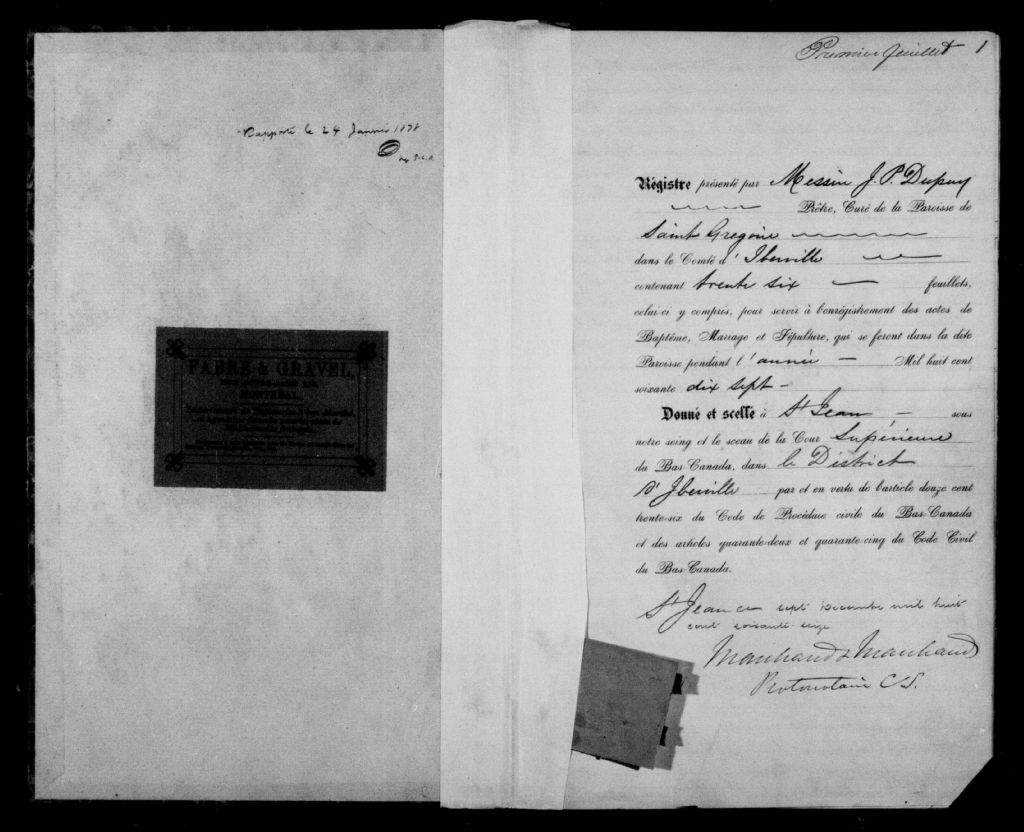 Rapporté le 24 Janvier 1878
FABRE & GRAVEL,
RUE NOTRE-DAME
MONTRÉAL.
Premier feuillet 1
Régistre présenté par Messire J. P. Dupuy
Prêtre, Curé de la Paroisse de
Saint Gregoire
dans le Comté d'Iberville
contenant trente six feuillets,
celui-ci y compris, pour servir à l'enrégistrement des actes de
Baptême, Mariage et Sépulture, qui se feront dans la dite
Paroisse pendant l'année Mil huit cent
soixante dix sept
Donné et scellé à St Jean sous
notre seing et le sceau de la Cour Supérieure
du Bas-Canada, dans le District
d'Iberville par et en vertu de l'article douze cent
trente-six du Code de Procédure civile du Bas-Canada
et des articles quarante-deux et quarante-cinq du Code Civil
du Bas-Canada.
St Jean ce sept Decembre mil huit
cent soixante seize
Marchand & Marchand
Protonotaire C.S.